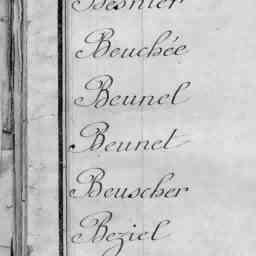 Besnier
Beuchée
Beunel
Beunet
Beuscher
Beziel